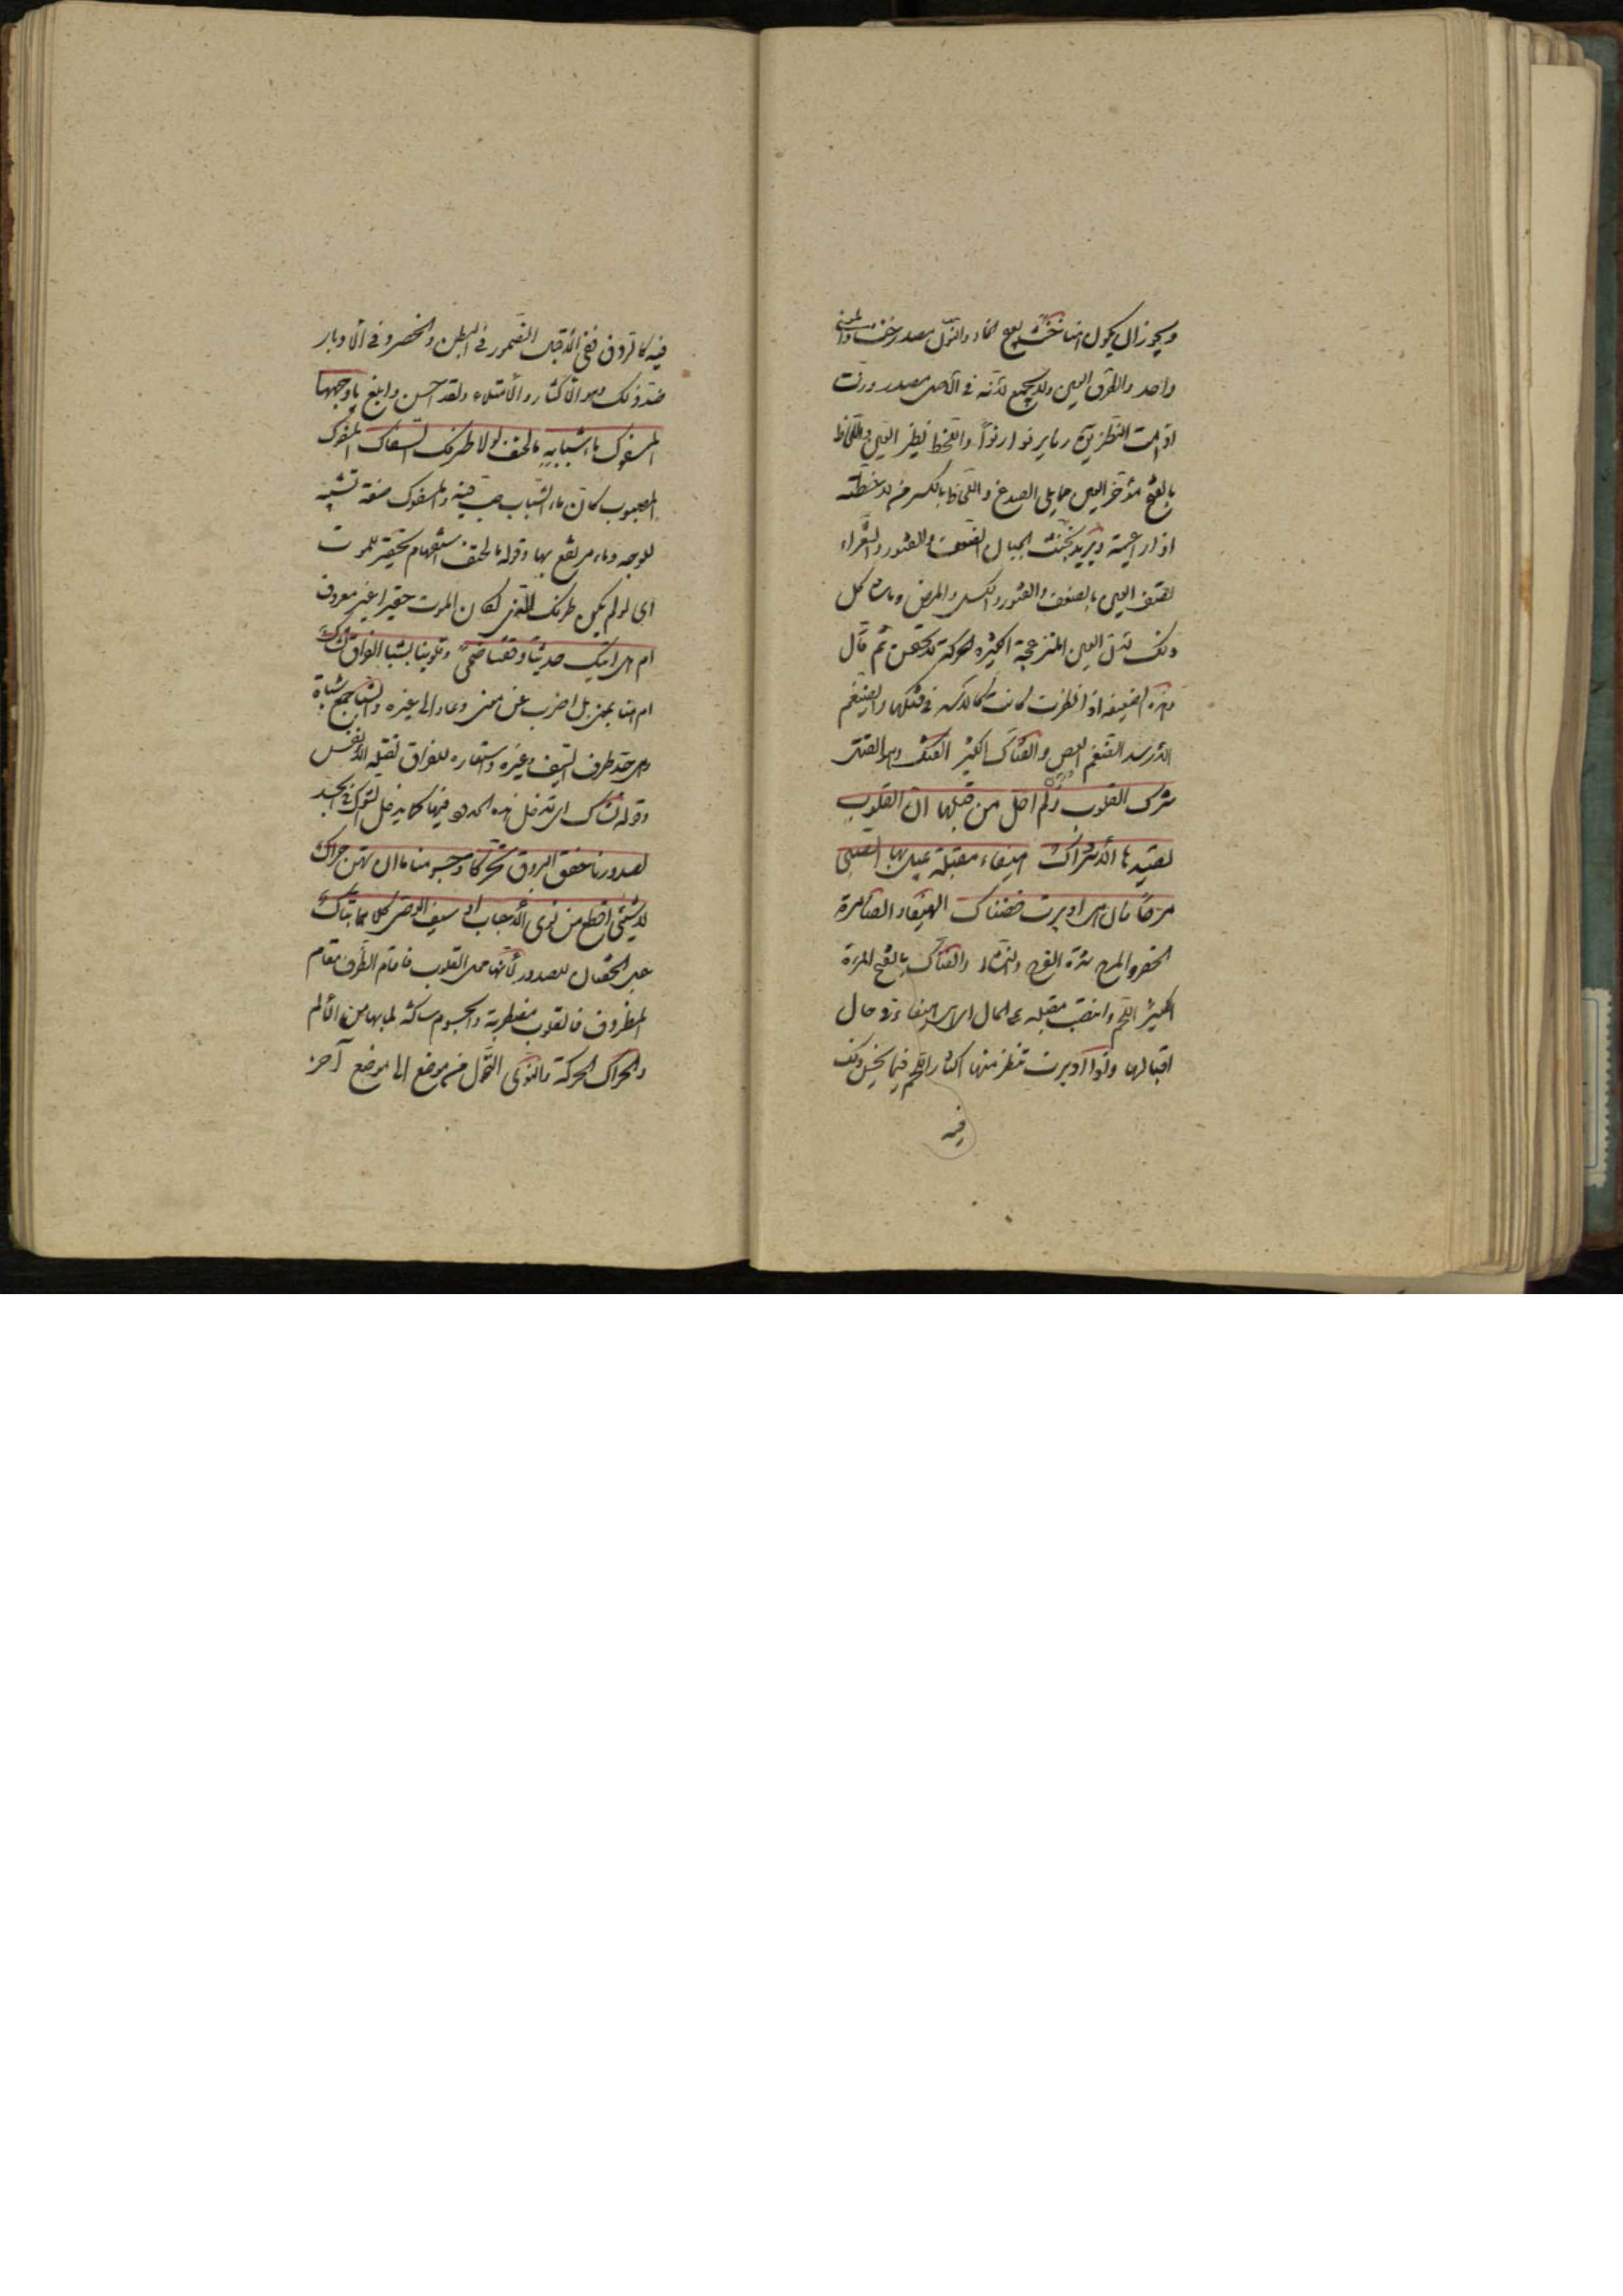 ويجوز ان يكون انها خنث بفتح الخاء والنون مصدر خنث والمعنى
واحد والطرف العين ولا يجمع لانه في الاصل مصدر ورنت
اذ امت النظر يقال رنا يرنو رنوّا واللحظ نظر العين واللحاظ
بالفتح مؤخر العين مما يلى الصدغ واللحاظ بالكسر مصدر لاحظته
اذا راعيته ويريد بخنث الجبان الضعف والفتور والشعراء
تصف العين بالضعف والفتور والكسل والمرض وما شاكل
ذلك لان العين المنزعجة الكثيرة الحركة تدل ثم قال
وهذه الضعيفة اذا نظرت كانت كالاسد في فتكها والضيغم
الاسد الضيغم العض والفتاك الكثير الفتك وهو القتل
شرك القلوب ولم اخل من قبلها ان القلوب
تصيدها الاشراك هيفاء مقبلة يميل بها الصبى
مرحا فان هى ادبرت فضناك الهيفاء الضامرة
الخصر والمرح شدة الفرح والنشاط والضناك بالفتح المرءة
الكثيرة اللحم وانتصب مقبلة على الحال اى هى هيفاء في حال
اقبالها واذا ادبرت تنظر منها اكثار اللحم فيما يحسن ذلك
فيه
فيه كالردف ففي الاقبال الضمور في البطن والخصر وفي الادبار
ضد ذلك وهو الاكثار والامتلاء ولقد احسن وابلغ يا وجهها
المسفوك ماء شبابه ما الحتف لولا طرفك السفاك المسفوك
المصبوب كان ماء الشباب صب فيه والمسفوك صفة تشبه
للوجه وماء مرتفع بها وقوله ما الحتف استفهام تحقير للموت
اى لو لم يكن طرفك القتال لكان الموت حقيرا غير معروف
ام هل اتيك حديثا وقفتنا ضحى وقلوبنا بشبا الفراق تشاك
ام هنا بمعنى بل اضرب عن معنى وعاد الى غيره والشبا جمع شباة
وهى حد طرف السيف وغيره واستعاره للفراق لقتله الانفس
وقوله تشاك اى تدخل هذه الحدود فيها كما يدخل الشوك في الجسد
لصدورنا خفق البروق تحركا وجسومنا ما ان بهن حراك
لا شىء اقطع من نوى الاحباب او سيف الوصى كلاهما فتاك
عبر الخفقان للصدور لانها محل القلوب فاقام الظرف مقام
المظروف فالقلوب مضطربة والجسوم ساكنة لما بها من الالم
والحراك الحركة والنوى التحول من موضع الى موضع آخر